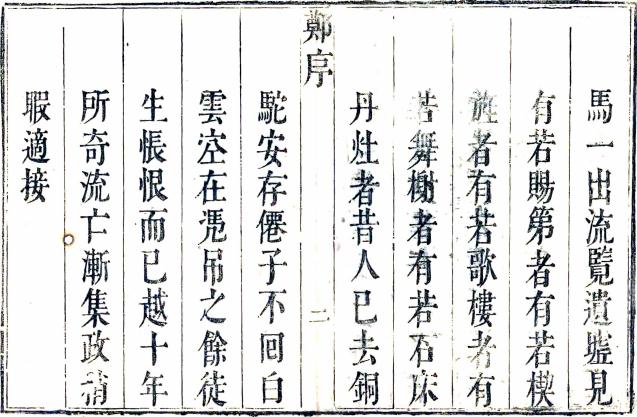 馬一出流覽遺墟見
有若賜第者有若楔
旌者有若歌樓者有
若舞榭者有若石床
丹灶者昔人已去銅
鄭序
二
駝安存僊子不回白
雲空在凴吊之餘徒
生悵恨而已越十年
所奇流亡漸集政稍
暇適接